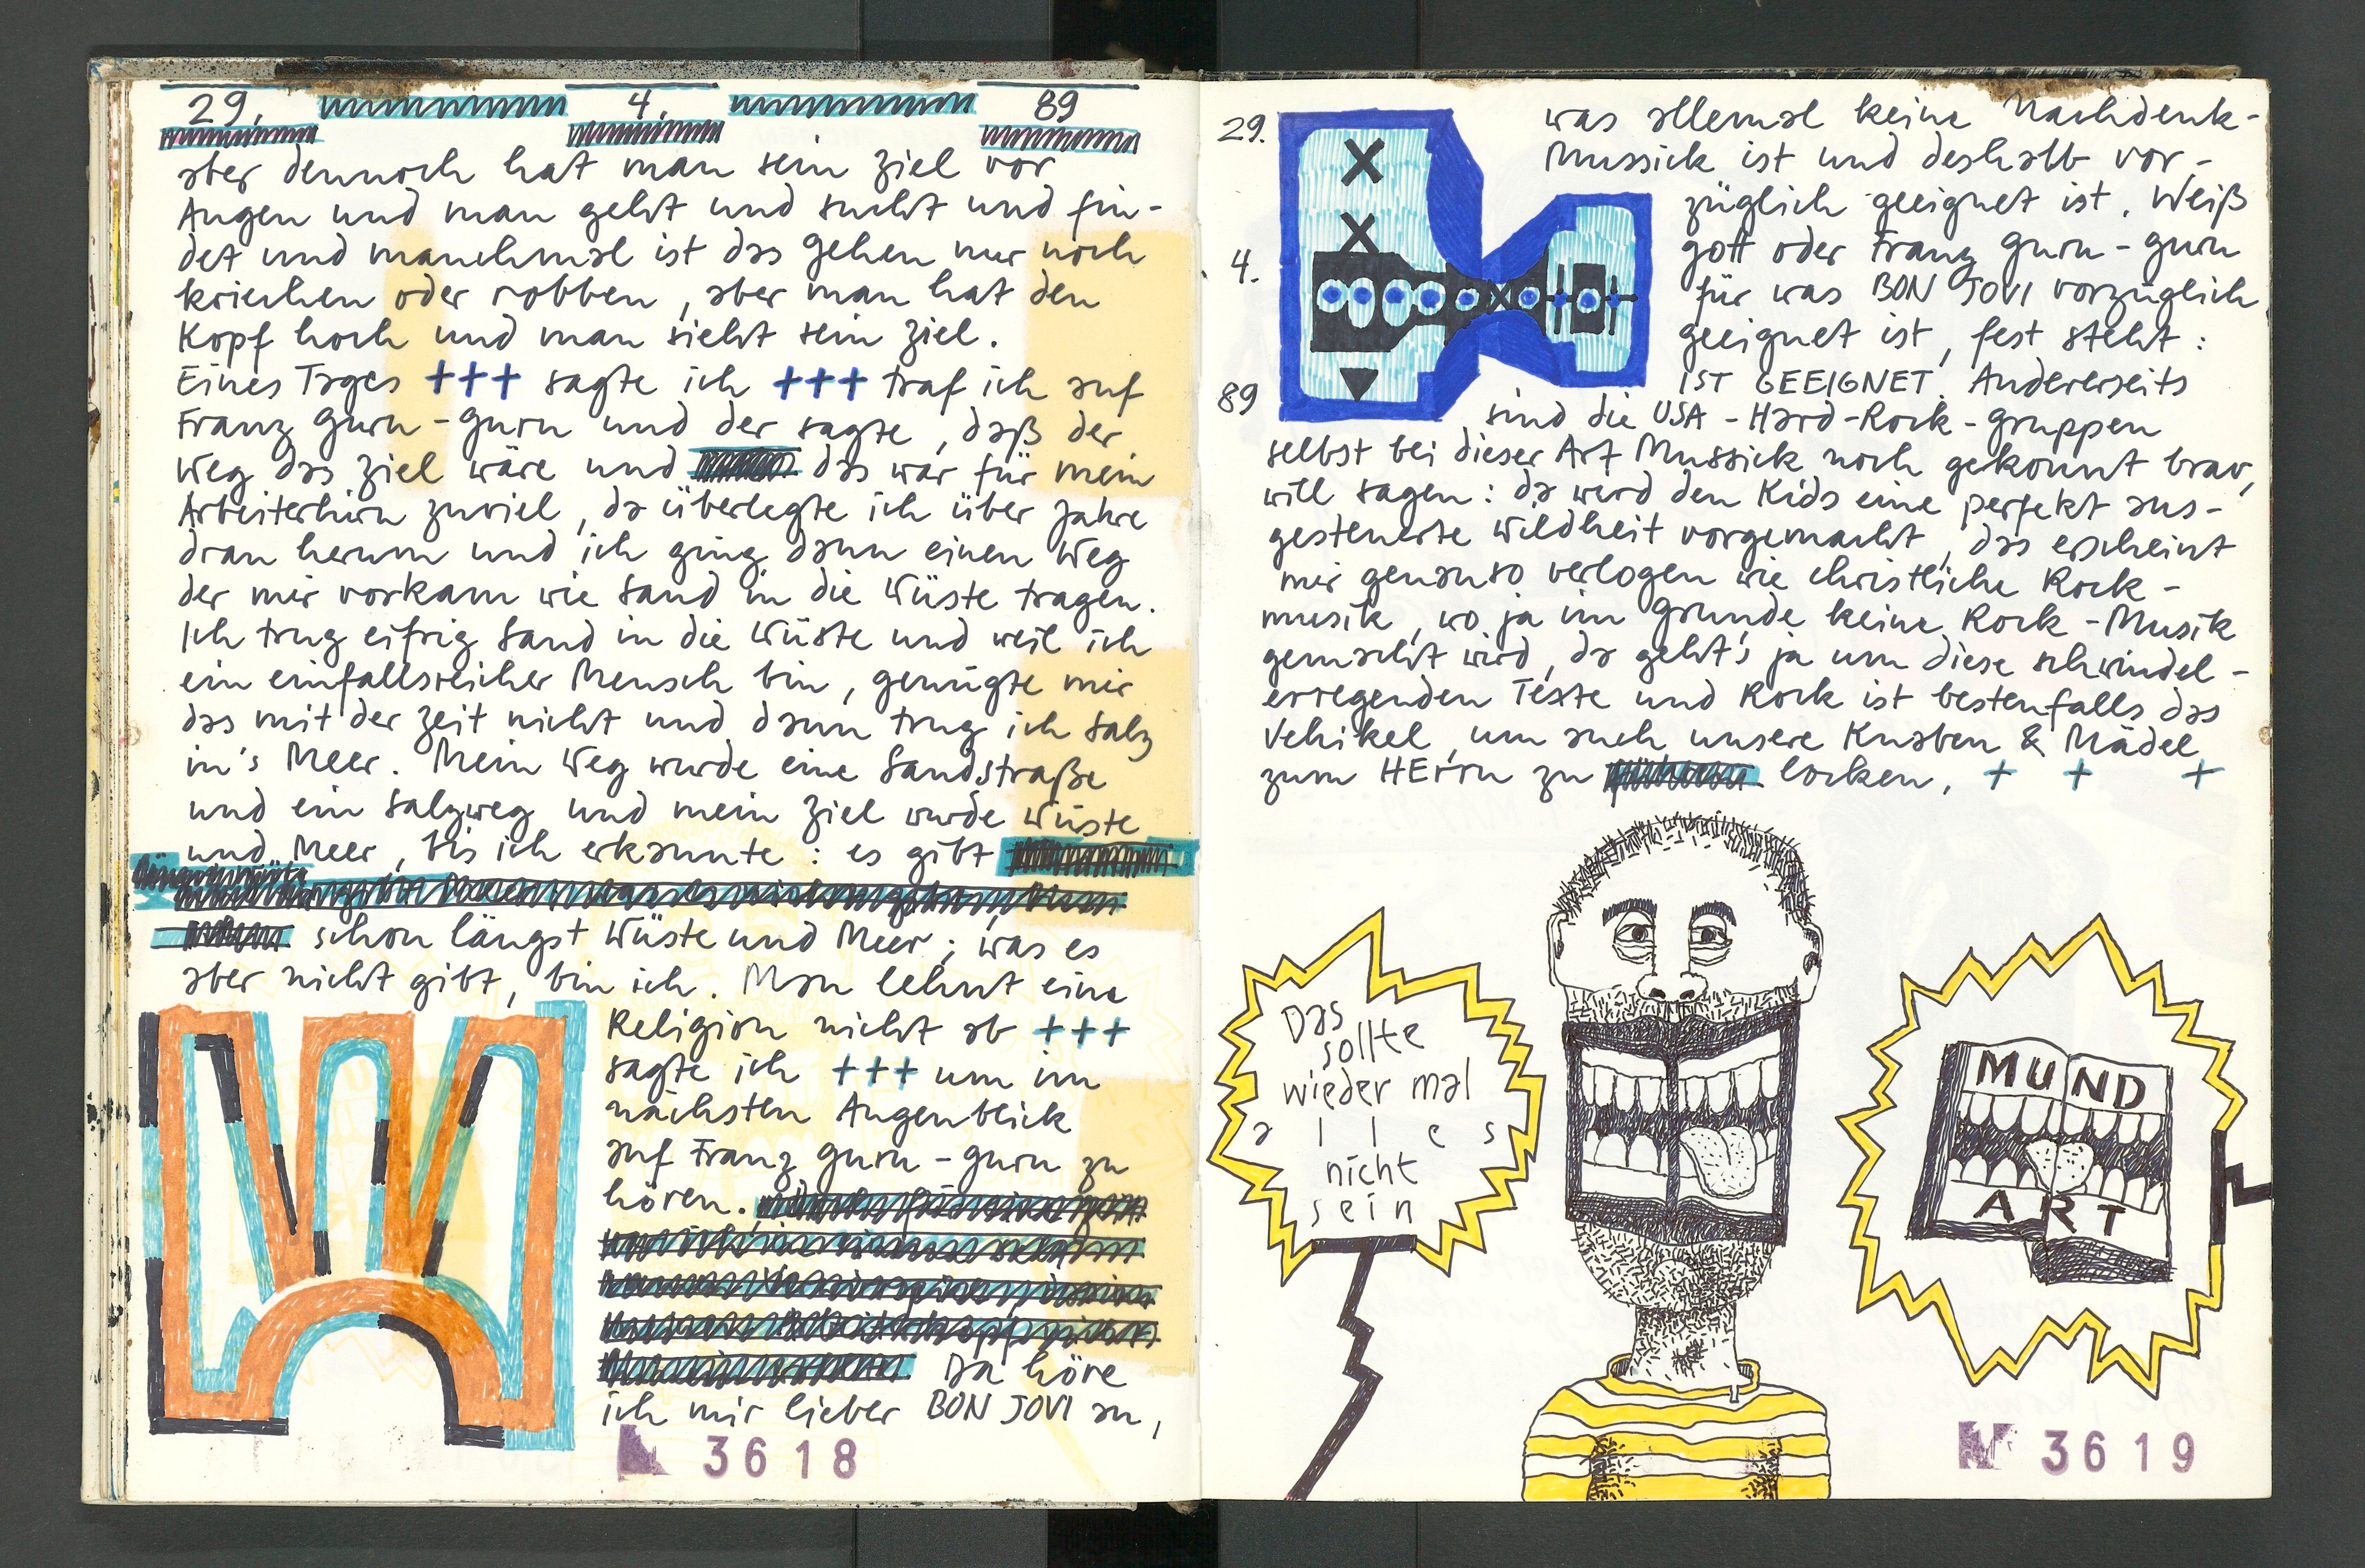 29. 4. 89
aber dennoch hat man sein Ziel vor
Augen und man geht und sucht und fin-
det und manchmal ist das Gehen nur noch
kriechen oder robben, aber man hat den
Kopf hoch und man sieht sein Ziel.
Eines Tages +++ sagte ich +++ traf ich auf
Franz Guru-Guru und der sagte, daß der
Weg das Ziel wäre und das war für mein
Arbeiterhirn zuviel, da überlegte ich über Jahre
dran herum und ich ging dann einen Weg
der mir vorkam wie Sand in die Wüste tragen.
Ich trug eifrig Sand in die Wüste und weil ich
ein einfallsreicher Mensch bin, genügte mir
das mit der Zeit nicht und dann trug ich Salz
in's Meer. Mein Weg wurde eine Sandstraße
und ein Salzweg und mein Ziel wurde Wüste
und Meer, bis ich erkannte: es gibt
schon längst Wüste und Meer; was es
aber nicht gibt, bin ich. Man lehnt eine
Religion nicht ab +++
sagte ich +++ um im
nächsten Augenblick
auf Franz Guru-Guru zu
hören.
Da höre
ich mir lieber BON JOVI an,
3618
29.
4.
89
was allemal keine Nachdenk-
Mussick ist und deshalb vor-
züglich geeignet ist. Weiß
Gott oder Franz Guru-Guru
für was BON JOVI vorzüglich
geeignet ist, fest steht:
IST GEEIGNET. Andererseits
sind die USA-Hard-Rock-Gruppen
selbst bei dieser Art Mussick noch gekonnt brav,
will sagen: da wird den Kids eine perfekt aus-
gesteuerte Wildheit vorgemacht, das erscheint
mir genauso verlogen wie christliche Rock-
musik, wo ja im Grunde keine Rock-Musik
gemacht wird, da geht's ja um diese schwindel-
erregenden Texte und Rock ist bestenfalls das
Vehikel, um auch unsere Knaben & Mädel
zum HErrn zu locken. + + +
Das
sollte
wieder mal
alles
nicht
sein
MUND
ART
3619